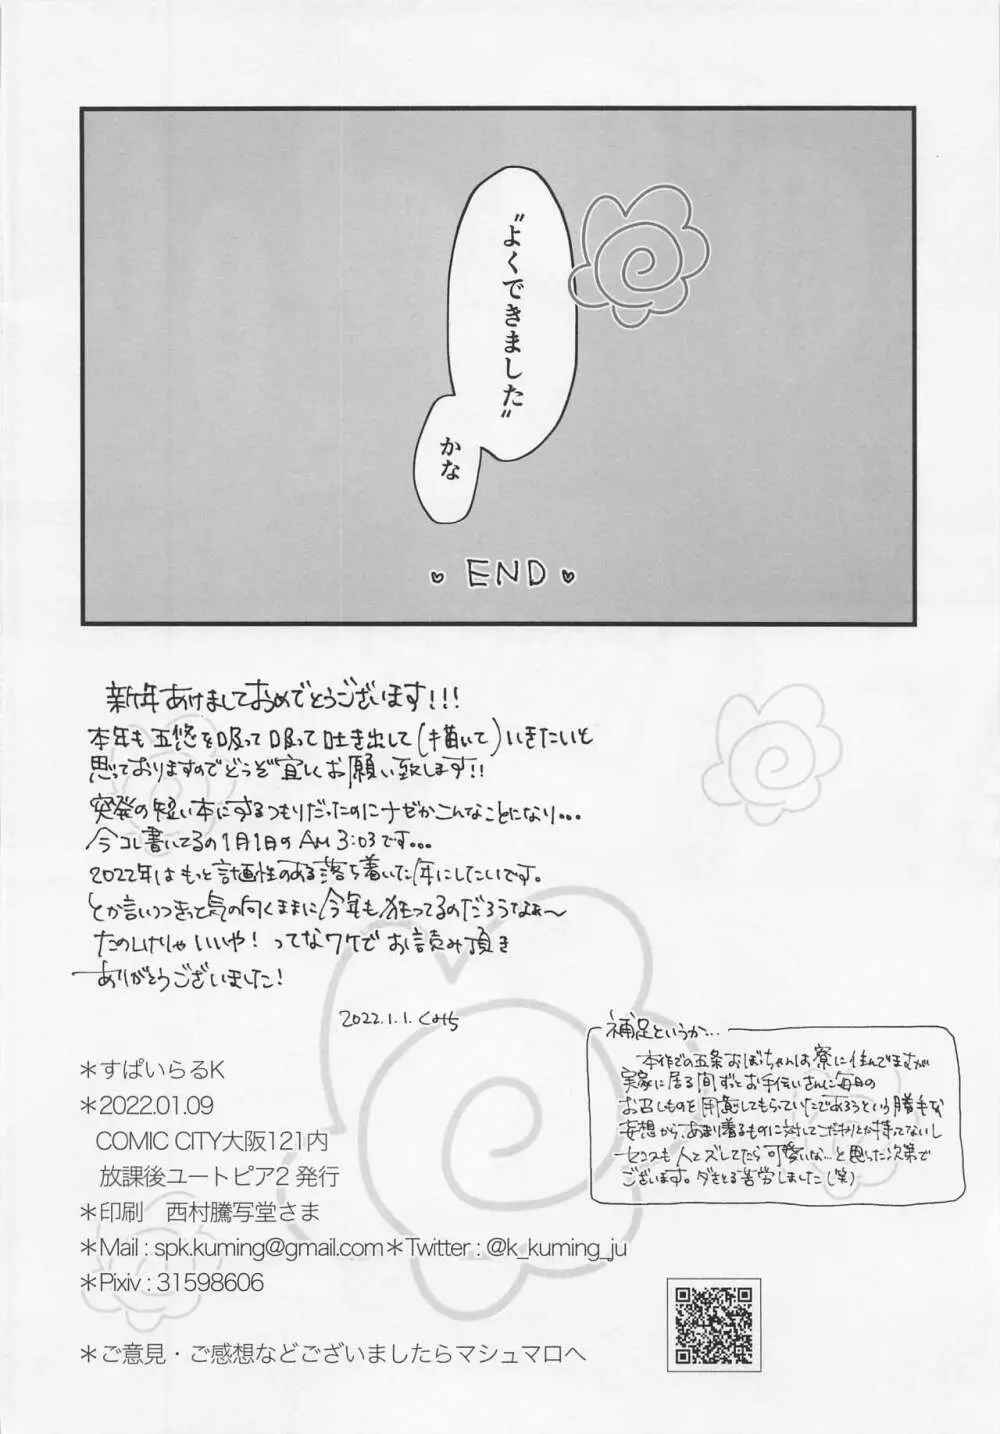 “よくできました”
かな
END
新年あけましておめでとうございます!!!
本年も五悠を吸って吸って吐き出して(描いて)いきたいと
思っておりますのでどうぞ宜しくお願い致します!!
突発の短い本にするつもりだったのにナゼかこんなことになり…
今コレ書いてるの1月1日のAM 3:03です…
2022年はもっと計画性のある落ち着いた年にしたいです。
とか言いつつきっと気の向くままに今年も狂ってるのだろうなぁ〜
たのしけりゃいいや! ってなワケでお読み頂き
ありがとうございました!
2022.1.1.くみち
補足というか…
本作での五条おぼっちゃんは寮に住んでますが
実家に居る間ずっとお手伝いさんに毎日の
お召しものを用意してもらっていたであろうという勝手な
妄想から、あまり着るものに対してこだわりとか持ってないし
センスも人とズレてたら可愛いな…と思った次第で
ございます。ダサとる苦労しました(笑)
＊すぱいらるK
＊2022.01.09
COMIC CITY大阪121内
放課後ユートピア2 発行
＊印刷 西村謄写堂さま
＊Mail : spk.kuming@gmail.com＊Twitter : @k_kuming_ju
＊Pixiv : 31598606
＊ご意見・ご感想などございましたらマシュマロへ